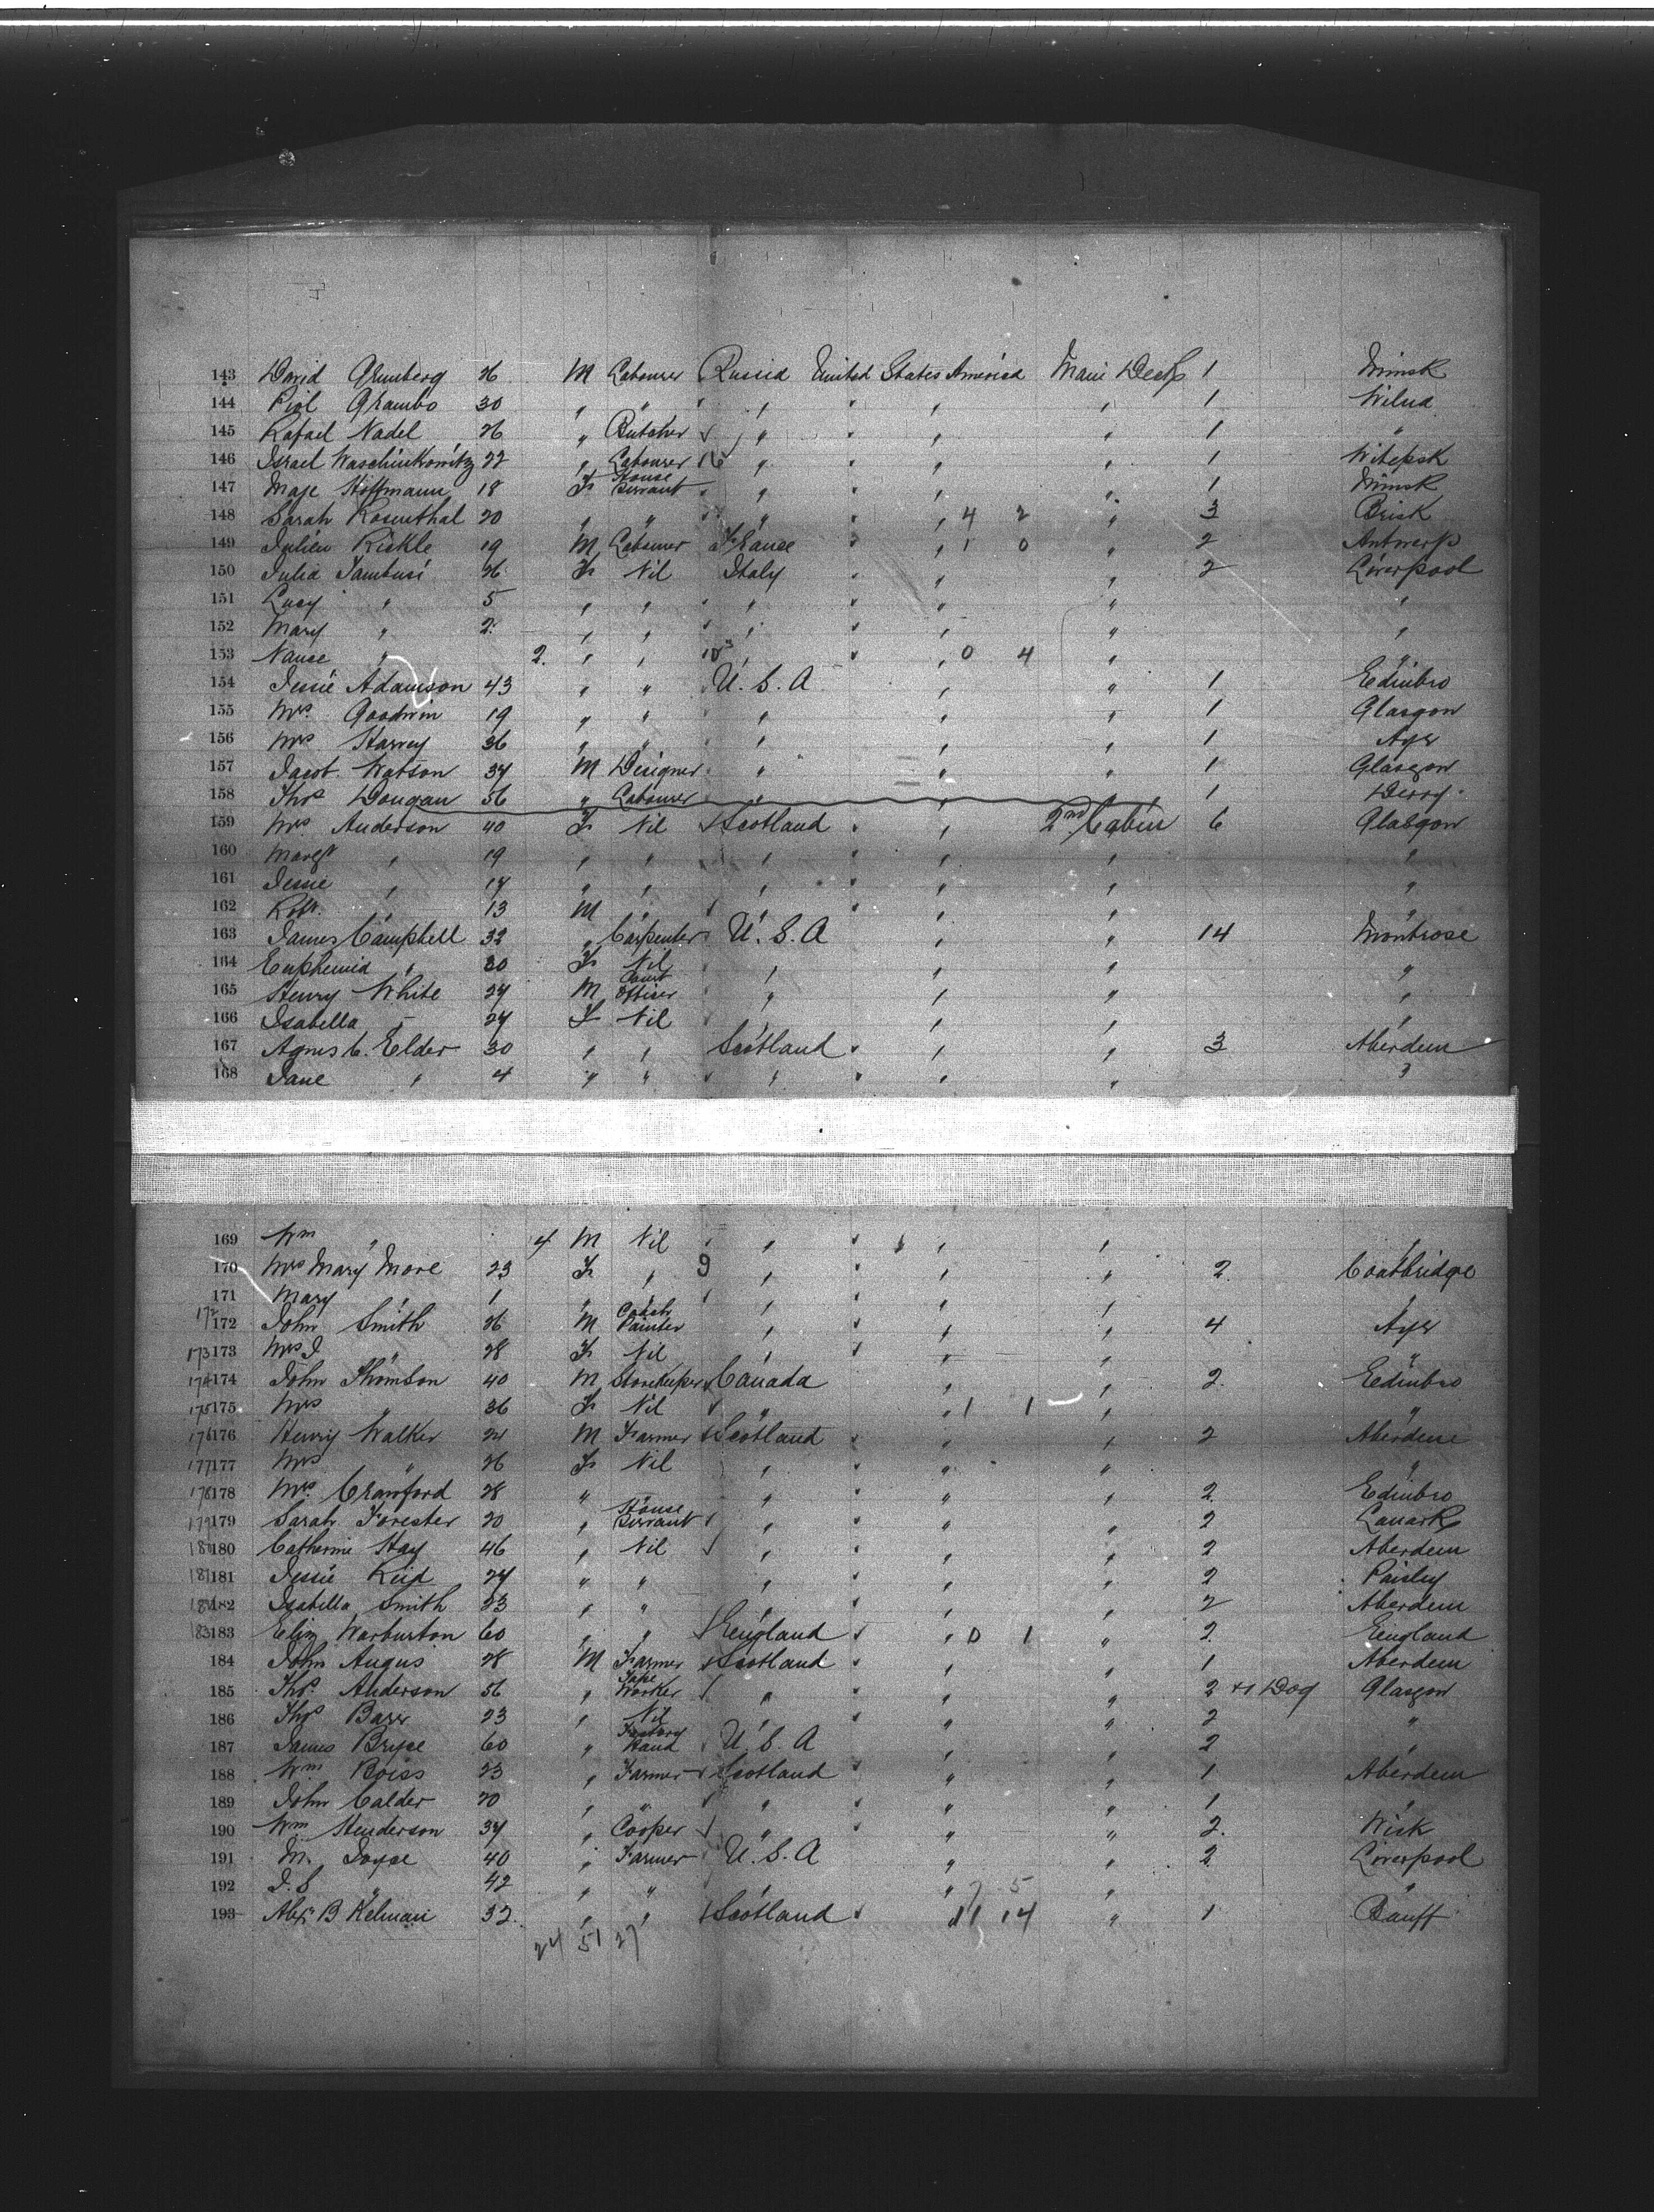 143 David Grunberg 26 M Labourer Russia United States America Main Deck 1 Minsk
144 Piol Grambo 30 " " " " " " 1 Wilna
145 Rafael Nadel 26 " Butcher " " " " 1 "
146 Israel Waschinkowitz 22 " Labourer 16 " " " " 1 Witepsk
147 Maje Hoffmann 18 F House Servant " " " " 1 Minsk
148 Sarah Rosenthal 20 " " " " " 4 2 " 3 Brisk
149 Julien Rickle 19 M Labourer France " " 1 0 " 2 Antwerp
150 Julia Tambusi 26 F Nil Italy " " " 2 Liverpool
151 Lucy " 5 " " " " " " "
152 Mary " 2 " " " " " " "
153 Nance " 2 " " " " 0 4 " "
154 Jessie Adamson 43 " " U. S. A " " 1 Edinbro
155 Mrs Goodwin 19 " " " " " 1 Glasgow
156 Mrs Harvey 36 " " " " " 1 Ayr
157 Jacob Watson 34 M Designer " " " 1 Glasgow
158 Thos Dougan 56 " Labourer " " " 1 Derry
159 Mrs Anderson 40 F Nil Scotland " " 2nd Cabin 6 Glasgow
160 Margt " 19 " " " " " " "
161 Jessie " 17 " " " " " " "
162 Robt. " 13 M " " " " " "
163 James Campbell 32 " Carpenter U. S. A " " 14 Montrose
164 Euphemia " 30 F Nil " " " "
165 Henry White 24 M Court Officer " " " "
166 Isabella " 24 F Nil " " " "
167 Agnes C. Elder 30 " " Scotland " " " 3 Aberdeen
168 Jane " 4 " " " " " " "
169 Wm " 4 M Nil " " " " "
170 Mrs Mary More 23 F " 9 " " " " 2 Coatbridge
171 Mary " 1 " " " " " " "
172 172 John Smith 26 M Coach Painter " " " " 4 Ayr
173 173 Mrs J " 28 F Nil " " " " "
174 174 John Thomson 40 M Storekeeper Canada " " 2 Edinbro
175 175 Mrs " 36 F Nil " " 1 1 " "
176 176 Henry Walker 21 M Farmer Scotland " " " 2 Aberdeen
177 177 Mrs " 26 F Nil " " " " "
178 178 Mrs Crawford 28 " " " " " " 2 Edinbro
179 179 Sarah Forester 20 " House Servant " " " " 2 Lanark
180 180 Catherine Hay 46 " Nil " " " " 2 Aberdeen
181 181 Jessie Reid 24 " " " " " " 2 Paisley
182 182 Isabella Smith 23 " " " " " " 2 Aberdeen
183 183 Eliz Warburton 60 " " England " " 0 1 " 2 England
184 John Angus 28 M Farmer Scotland " " " 1 Aberdeen
185 Thos. Anderson 56 " Worker " " " " 2 + 1 Dog Glasgow
186 Thos Barr 23 " Nil " " " " 2 "
187 James Bryce 60 " Factory Hand U. S. A " " 2 "
188 Wm Boiss 23 " Farmer Scotland " " " 1 Aberdeen
189 John Calder 20 " " " " " " 1 "
190 Wm Henderson 34 " Cooper " " " " 2 Wick
191 M. Joyce 40 " Farmer U. S. A " " 2 Liverpool
192 J. S " 42 " " " " " "
7 5
193 Alex B Kelman 32 " " Scotland " " 11 14 " 1 Banff
24 51 27